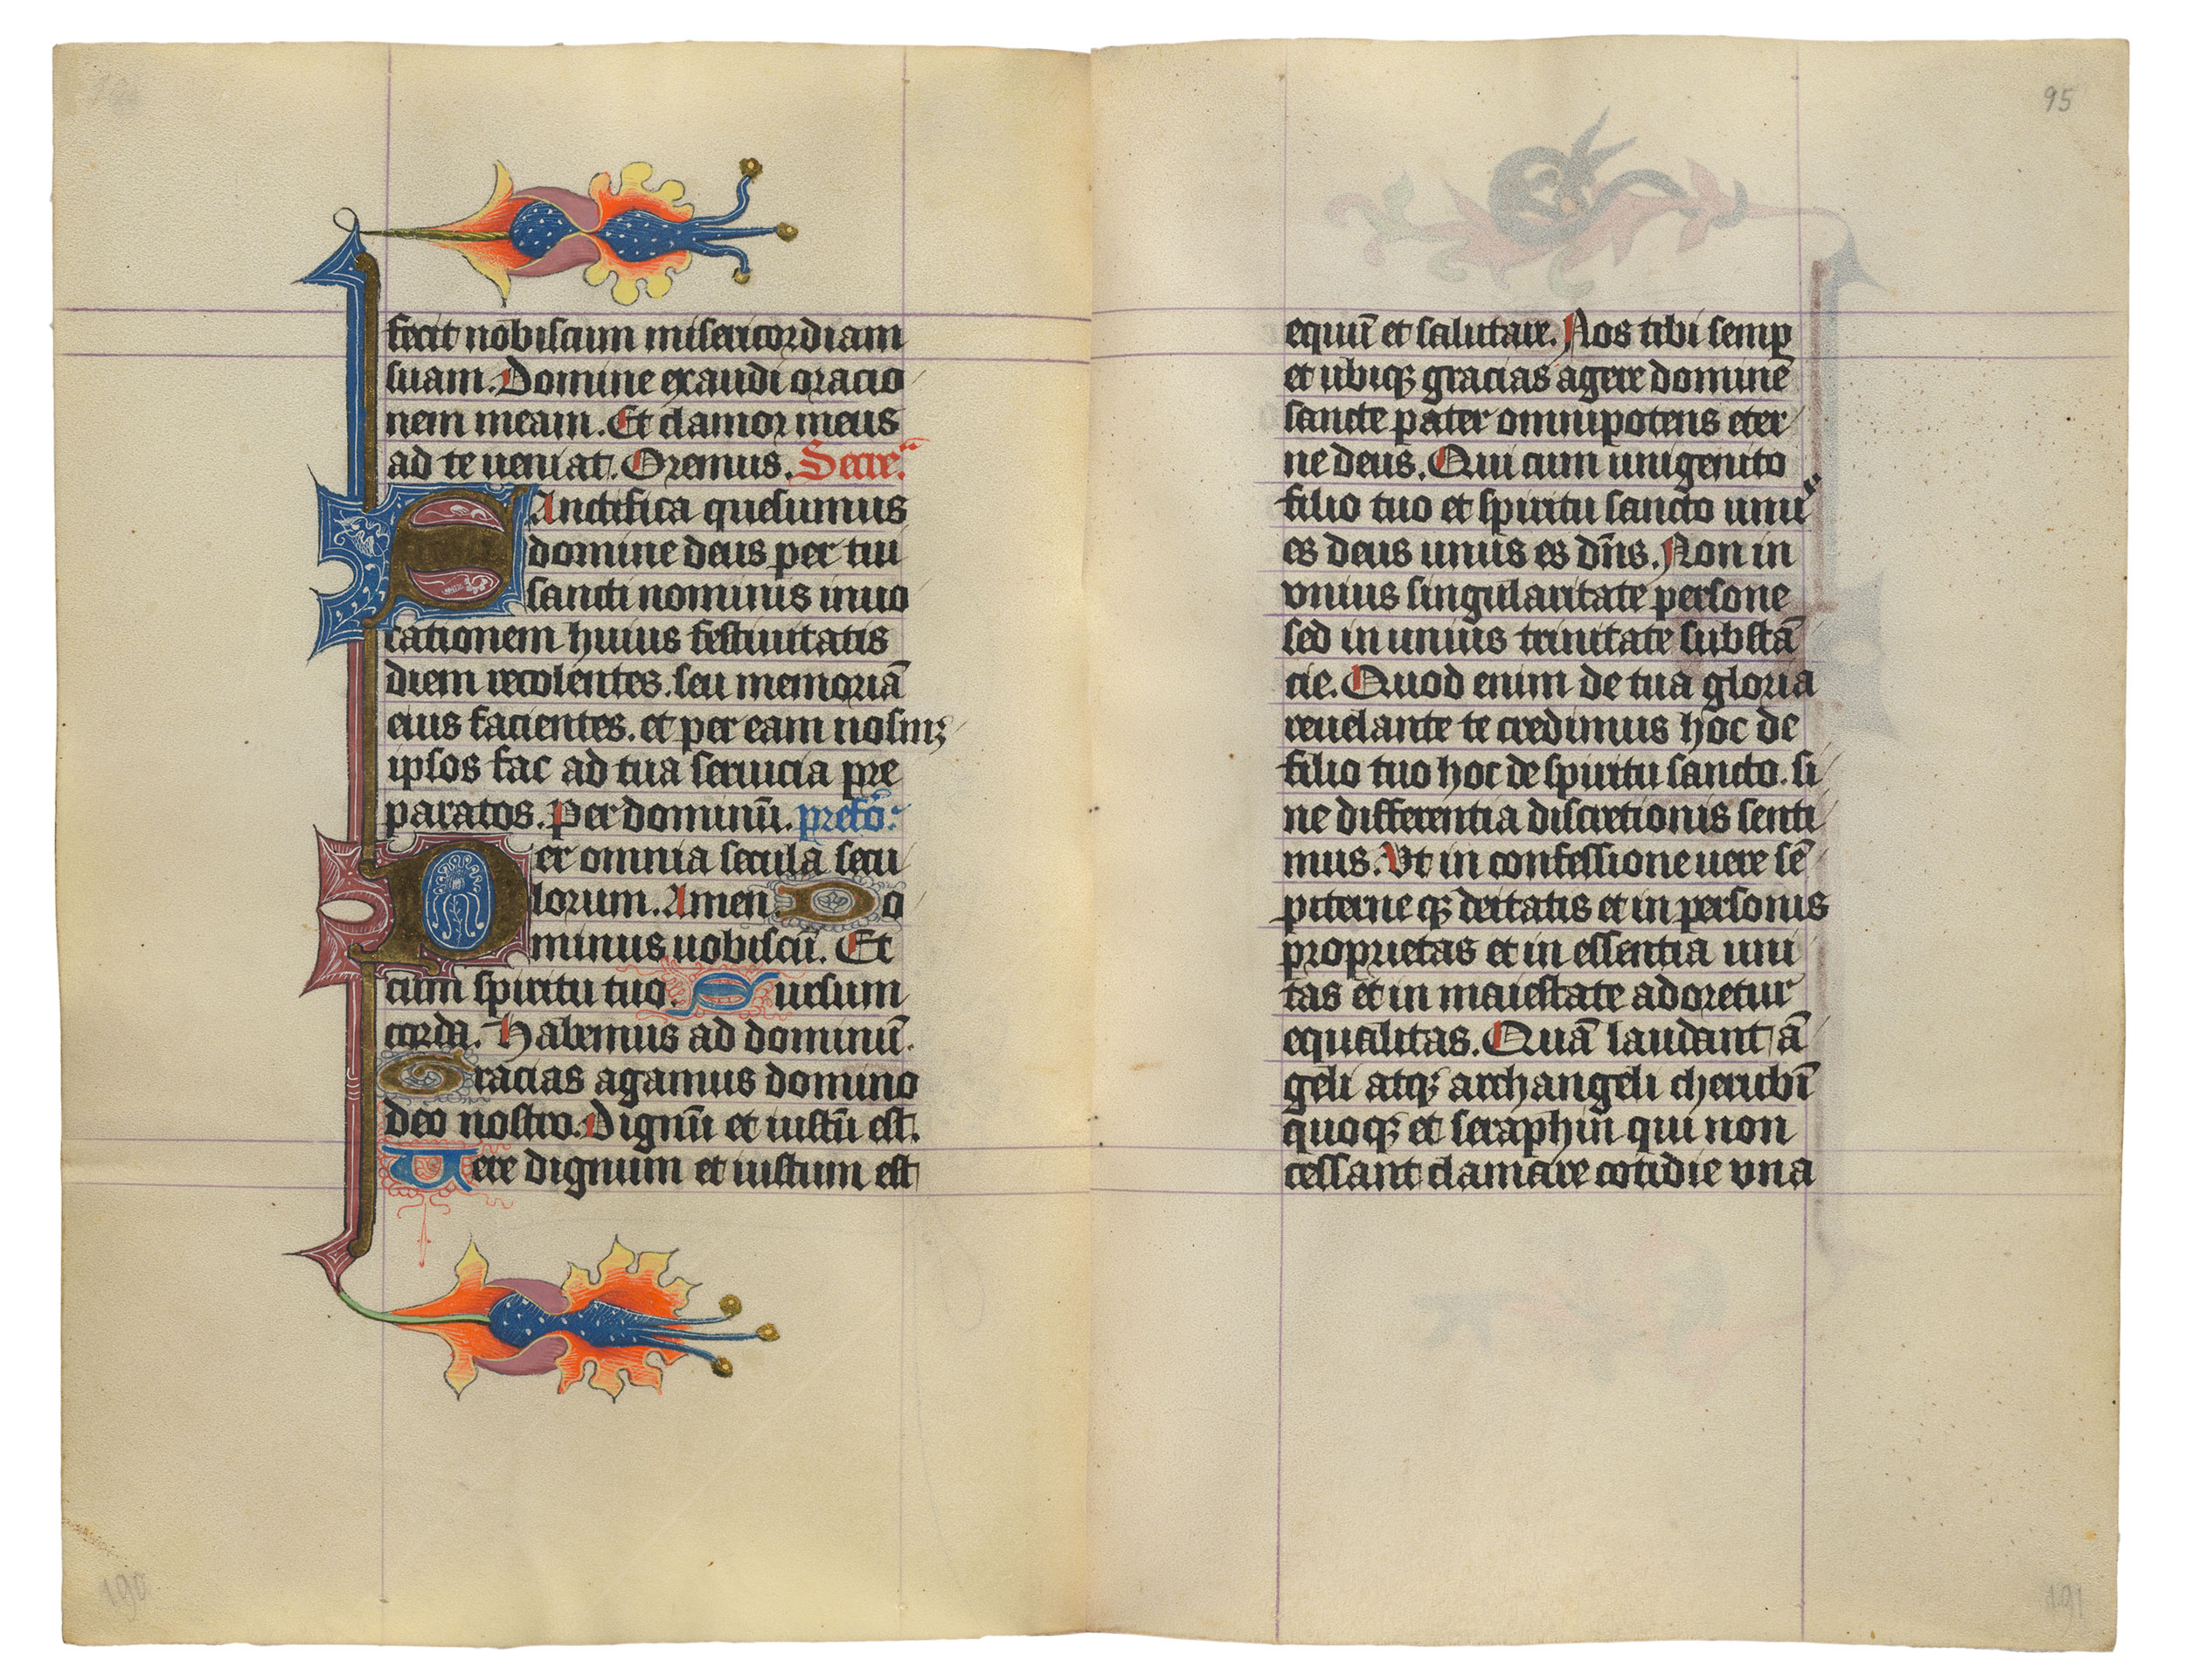 fecit nobiscum misericordiam
suam. Domine exaudi oracio
nem meam. Et clamor meus
ad te ueniat. Oremus. Secre.
SAnctifica quesumus
domine deus per tui
sancti nominis inuo
cationem huius festiuitatis
diem recolentes. seu memoriā
eius facientes. et per eam nosmꝫ
ipsos fac ad tua seruicia pre
paratos. Per dominū. prefō.
Per omnia secula secu
lorum. Amen Do
minus uobiscū. Et
cum spiritu tuo. Sursum
corda. Habemus ad dominū.
Gracias agamus domino
deo nostro. Dignū et iustū est.
Uere dignum et iustum est
95
equū et salutare. Nos tibi semp
et ubiqꝫ gracias agere domine
sancte pater omnipotens eter
ne deus. Qui cum unigenito
filio tuo et spiritu sancto unus
es deus unus es dn̄s. Non in
vnius singularitate persone
sed in unius trinitate substā
cie. Quod enim de tua gloria
reuelante te credimus hoc de
filio tuo hoc de spiritu sancto. si
ne differentia discretionis senti
mus. Vt in confessione uere sē
piterne qꝫ deitatis et in personis
proprietas et in essentia uni
tas et in maiestate adoretur
equalitas. Quā laudant ā
geli atqꝫ archangeli cherubī
quoqꝫ et seraphin qui non
cessant clamare cotidie vna
190
191